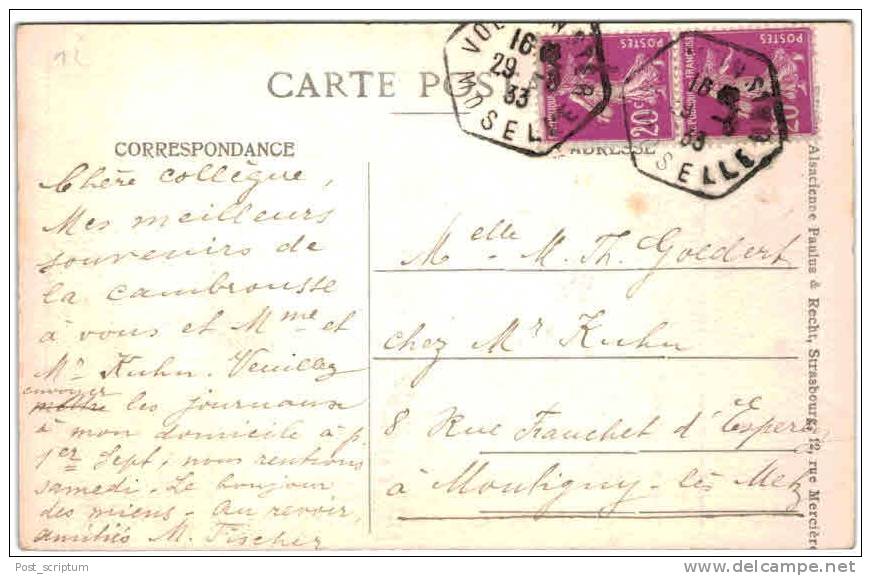 CARTE POS
CORRESPONDANCE
ADRESSE
Chère collègue,
Mes meilleurs
souvenirs de
la cambrousse
à vous et Mme et
Mr Kuhn. Veuillez
envoyer les journaux
à mon domicile à p.
1er Sept; nous rentrons
samedi. Le bonjour
des miens. Au revoir,
amitiés M. Fischer
Melle M. Th. Goldert
chez Mr Kuhn
8 Rue Franchet d'Esperey
à Montigny-lès Metz
16
29
33
MOSELLE
POSTES
20c
POSTES
FRANÇAISE
20
16
33
SELLE
Alsacienne Paulus & Recht, Strasbourg, 12, rue Mercière
Post_scriptum
delcampe.net